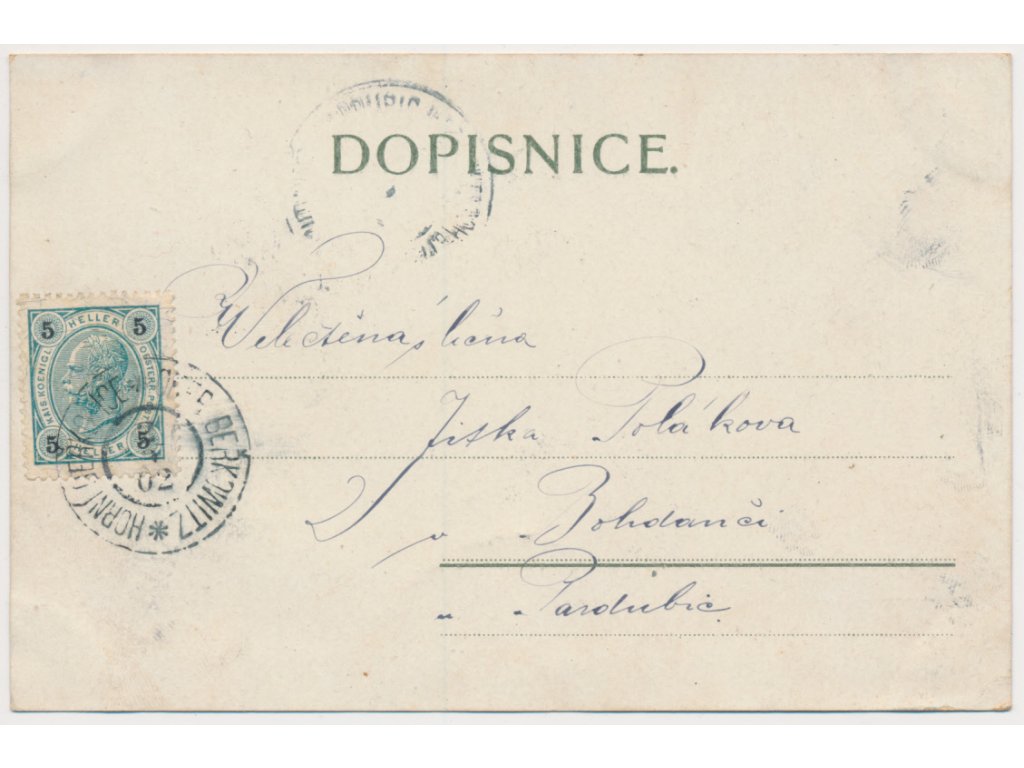 DOPISNICE.
5 HELLER 5
KAIS. KOENIGL. OESTERR. POST
5 HELLER 5
BERKOWITZ * HORNÍ BEŘ
02
Veležena slečna
Jitka Polákova
v Bohdanči
u Pardubic